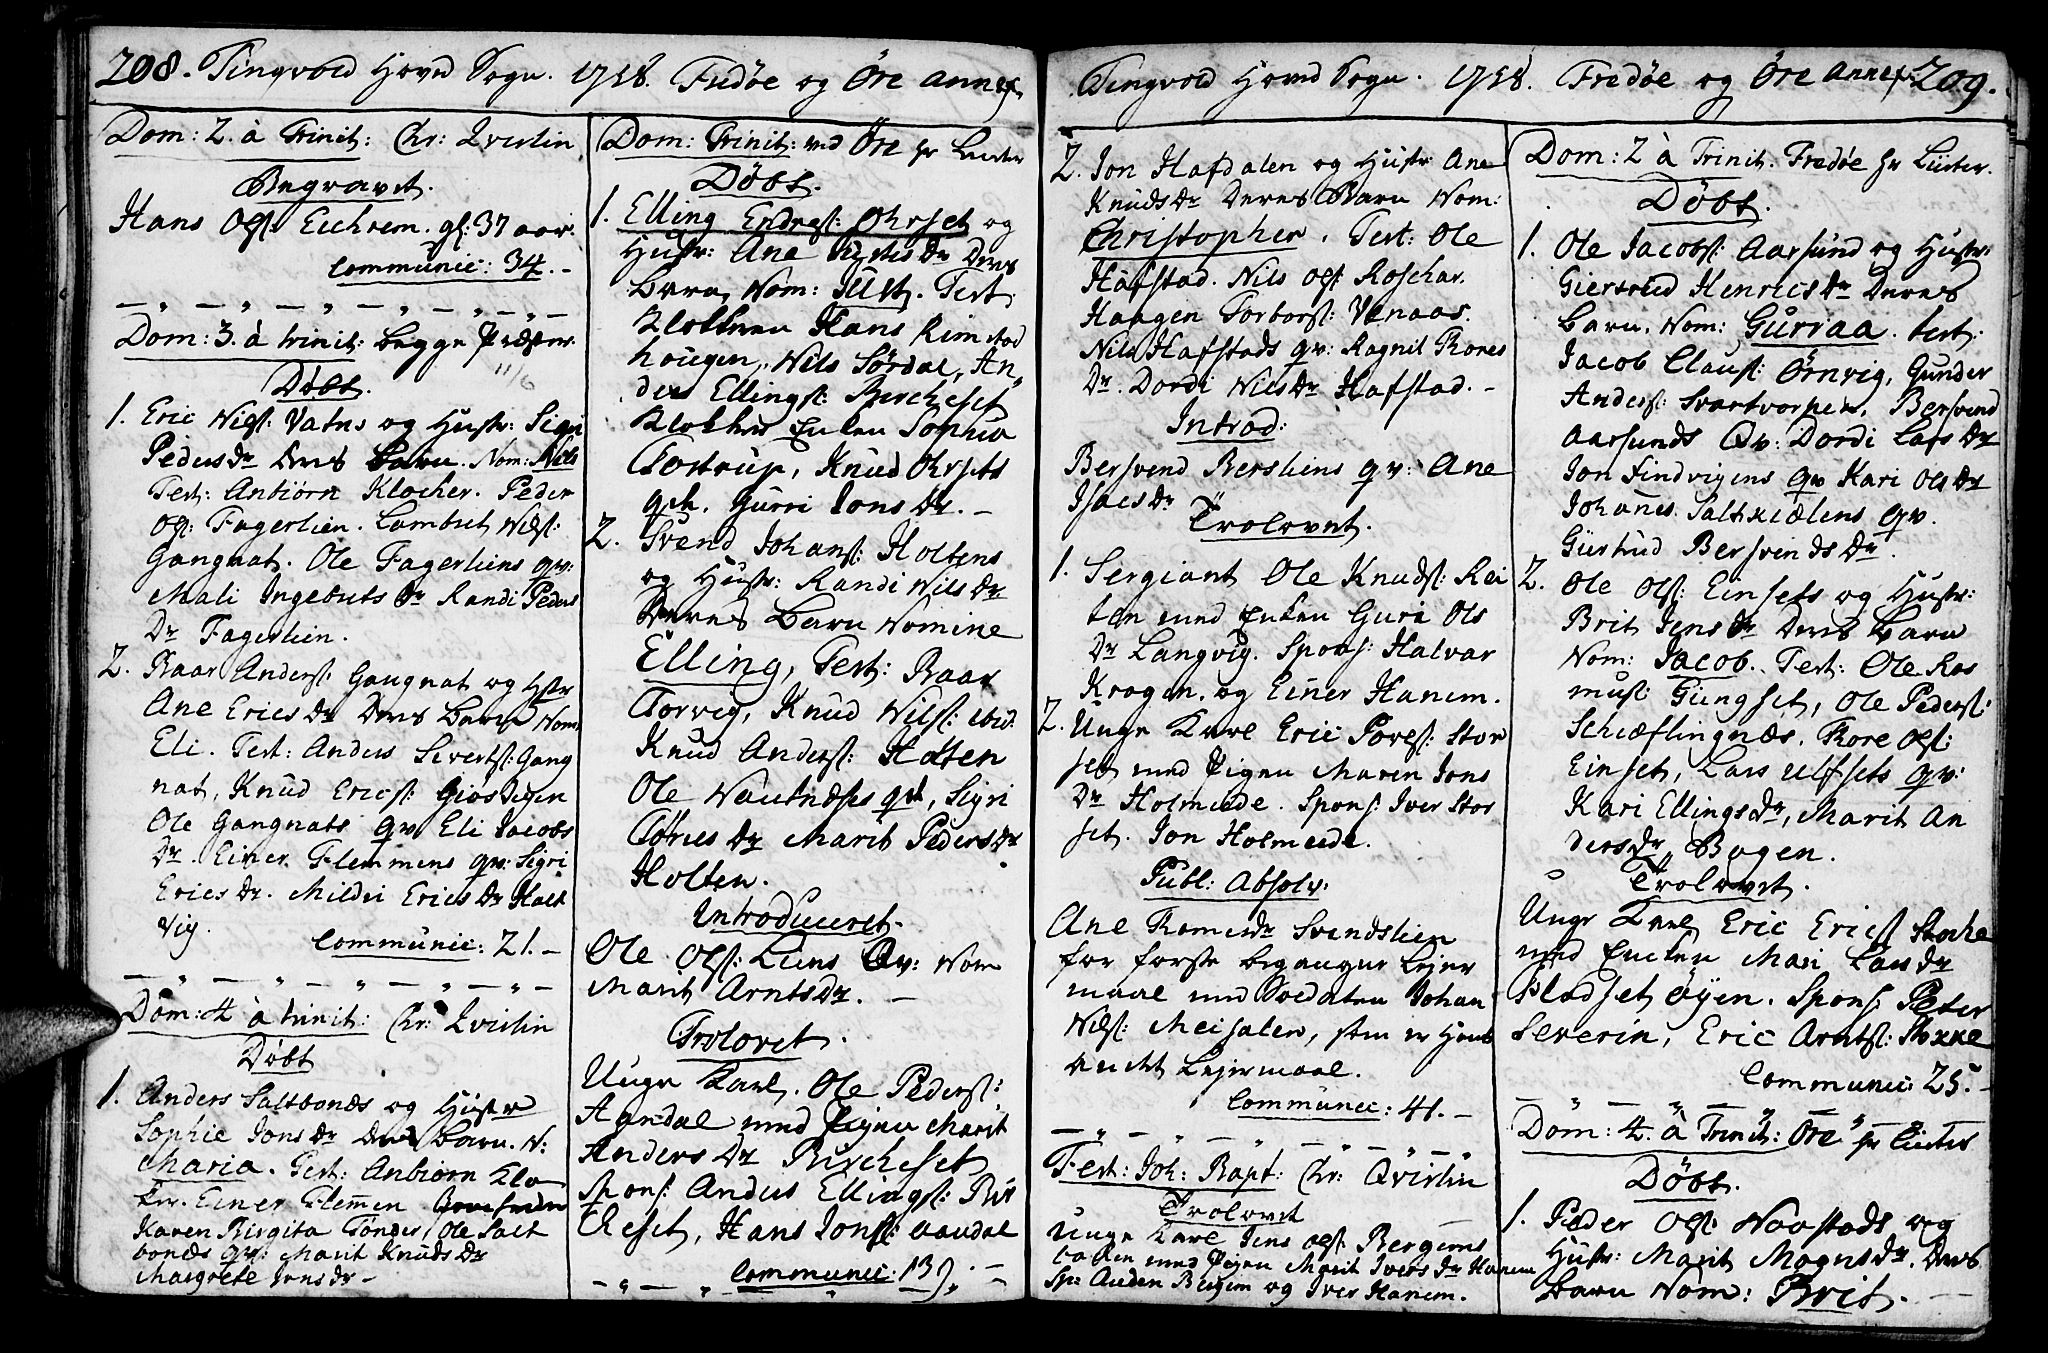 208. Tingvold Hovd Sogn. 1758. Fredøe og Öre annex.
Dom: 2. à Trinit: Chr: Qvislin
Begravet.
Hans Ols: Eichrem. gl: 37 aar.
Communic: 34. -
Dom: 3. à Trinit: begge
11/6
Døbt.
1. Eric Nils: Vatns og Hustr: Sigri
Peders Dr Deres Barn. Nom: Nils
Test: Anbiörn Klocher. Peder
Ols: Fagerlien. Lambret Nils:
Gangnat. Ole Fagerliens qv:
Mali Ingebrets Dr Randi Peders
Dr Fagerlien.
2. Baar Anders: Gangnat og Hstr
Ane Erics Dr Deres Barn Nom
Eli. Test: Anders Sivertß: Gang
nat, Knud Ericß: Giøstegen
Ole Gangnats qv Eli Jacobs
Dr. Einer Flemmens qv: Sigri
Erics Dr. Mildri Erics Dr Holt
vig.
Communic: 21. -
Dom: 4 à Trinit: Chr: Qvislin
Døbt
1. Anders Saltbonæs og Hustr
Sophie Jons Dr Deres Barn. N:
Maria. Test: Anbiörn Klo
ker. Einer Flemen
Karen Birgita Tönder, Ole Salt
bonæs qv: Marit Knuds Dr
Margrete Jens Dr -
Dom: Trinit: ved Öre hr Lüster
Døbt.
1. Elling Endreß: Ohrset og
Hustr: Ane Dr Deres
Barn, Nom: Test:
Klokkeren Hans Rimstad
hougen, Nils Sördal, An
ders Ellingß: Bircheset
Klokker Enken Sophia
Tostrup, Knud Ohrsets
qv. Gurri Jons Dr. -
2. Svend Johanß: Holtens
og Hustr: Randi Nils Dr
Deres Barn Nomine
Elling, Test: Baar
Torvig, Knud Nilß: ibid.
Knud Anderß: Holten
Ole Nautnæses qv, Sigri
Tóries Dr Marit Peders Dr
Holten.
Introduceret.
Ole Olß: Liens Qv: Nom
Marit Arnts Dr. -
Trolovet.
Unge Karl. Ole Pederß:
Aandal med Pigen Marit
Anders Dr Bircheset
Spons: Anders Ellingß: Bir
cheset, Hans Jonß: aandal
Communic: 139. -
Tingvold Hovd Sogn. 1758. Fredøe og Öre Annex. 209.
2. Jon Hafdalen og Hustr Ane
Knuds Dr Deres Barn Nom:
Christopher. Test: Ole
Hafstad. Nils Olß Roschar.
Haagen Torborß: Venaas.
Nils Hafstads qv: Ragnil Tores
Dr. Dordi Nils Dr Hafstad. -
Introd:
Bersvend Berstiens qv: Ane
Isacs Dr
Trolovet.
1. Sergiant Ole Knudß: Rei
ten med Enken Guri Ols
Dr Langvig. Spons: Halvar
Krogen. og Einer Hanem.
2. Unge Karl Eric Poveß: Stor
set med Pigen Maren Jons
Dr Holmeide. Spons: Iver Stor
set. Jon Holmeide.
Publ: Absolv:
Ane Tomes Dr Svendslien
for förste begangne Lejer
maal med Soldaten Johan
Nilß: Meisalen, som er
Lejermaal.
Communic: 41. -
Fest: Joh: Bapt: Chr: Qvislin
Trolovet
Unge Karl Jens Olß Bergems
bakken med Pigen Marit Ivers Dr Hanem
Sp: Anders Bergem og Iver Hanem.
Dom: 2 à Trinit. Fredøe hr Lüster.
Døbt.
1. Ole Jacobß: Aarsund og Hustr:
Giertrud Henrics Dr Deres
Barn. Nom: Gurriaa. test:
Jacob Clauß: Örnvig, Gunder
Anderß: Svartvorpen. Bersvend
Aarsunds Qv: Dordi Lars Dr
Jon Findvigens qv Kari Ols Dr
Johanes Saltkiælens qv.
Giertrud Bersvends Dr.
2. Ole Olß: Einsets og Hustr:
Brit Jens Dr Deres Barn
Nom: Jacob. Test: Ole Ras
muß: Gimgset, Ole Pederß:
Schiæflingnæs. Tore Olß:
Einset, Lars Ulfsets qv:
Kari Ellings Dr, Marit An
ders Dr Bogen.
Trolovet.
Unge Karl Eric Ericß Stoche
med Enken Mari Lars Dr
Pladset öyen. Spons Peter
Severin, Eric Arntß: Stokke
Communic: 25. -
Dom: 4. à Trinit: Öre hr Lüster
Døbt.
1. Peder Olß: Naastads og
Hustr: Marit Mogns Dr. Deres
Barn Nom: Brit.